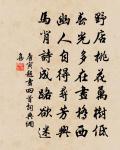 野店桃花萬樹低
春光多在畫橋西
幽人自得尋芳興
馬肯詩成路欲迷
唐寅題畫四首詞典網
集